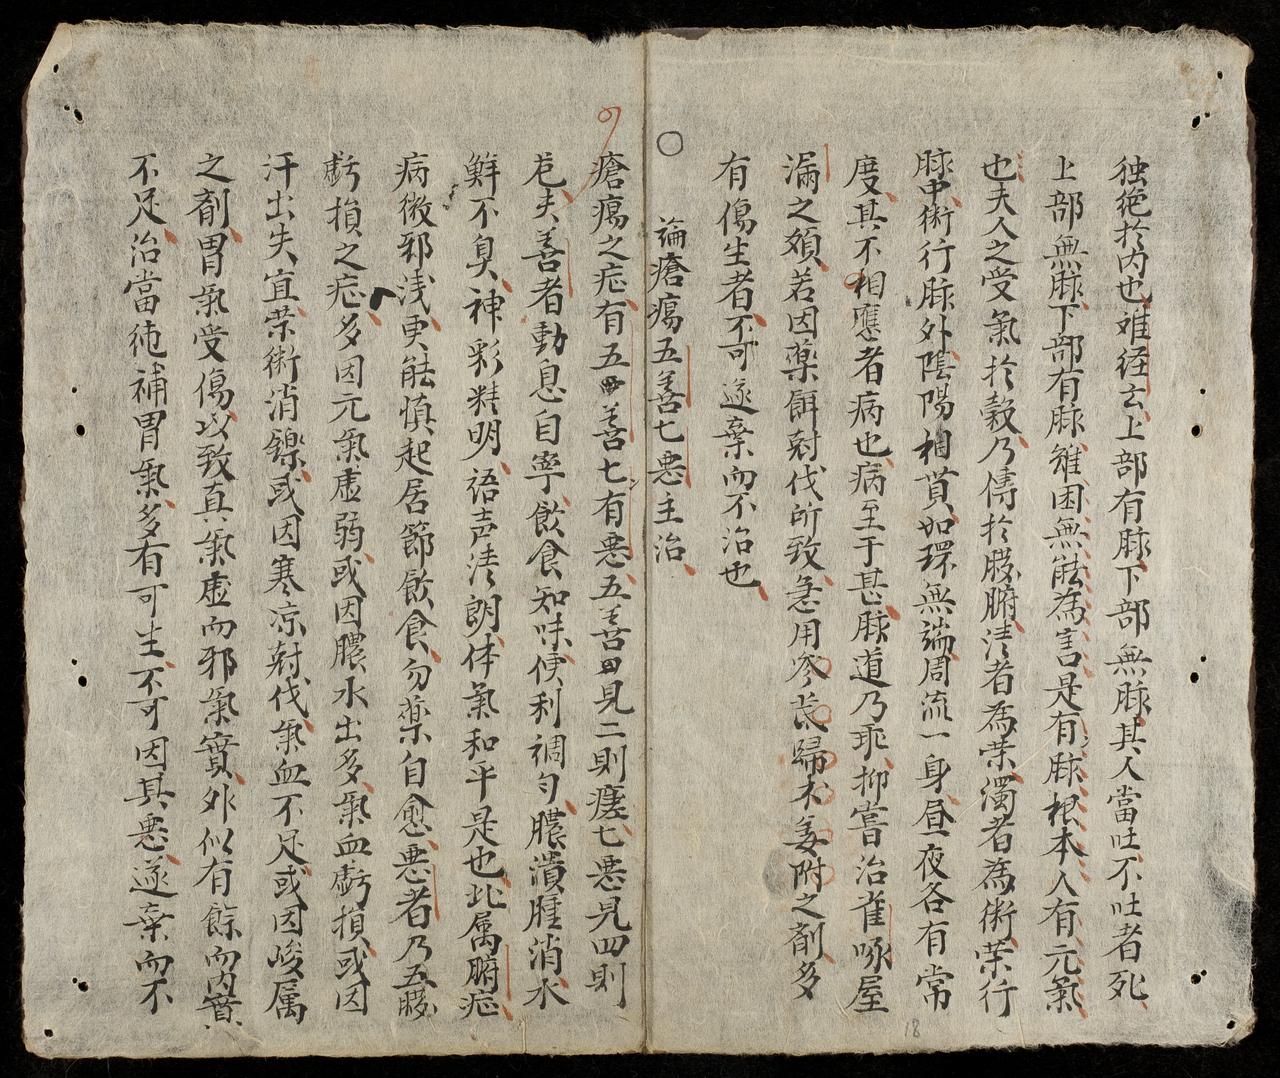 独绝於内也难经云上部有脉下部無脉其人當吐不吐者死
上部無脉下部有脉雖困無能為害是有脉根本人有元氣
也夫人之受氣於穀乃傳於臓腑清者為荣濁者為衛荣行
脉中衛行脉外陰陽相貫如環無端周流一身昼夜各有常
度其不相應者病也病至于甚脉道乃乖抑嘗治雀啄屋
漏之類若因藥餌尅伐所致急用參芪歸木姜附之剤多
有傷生者不可遂棄而不治也
論瘡瘍五善七悪主治
瘡瘍之症有五善七有悪五善見二則瘥七悪見四則
危夫善者動息自寧飲食知味便利調匀膿潰腫消水
鮮不臭神彩精明语声清朗体氣和平是也此属腑症
病微邪浅更能慎起居節飲食勿藥自愈悪者乃五臓
虧損之症多因元氣虚弱或因膿水出多氣血虧損或因
汗出失宜荣衛消鑠或因寒凉尅伐氣血不足或因峻属
之剤胃氣受傷以致真氣虚而邪氣實外似有餘而内實
不足治當純補胃氣多有可生不可因其悪遂棄而不
18